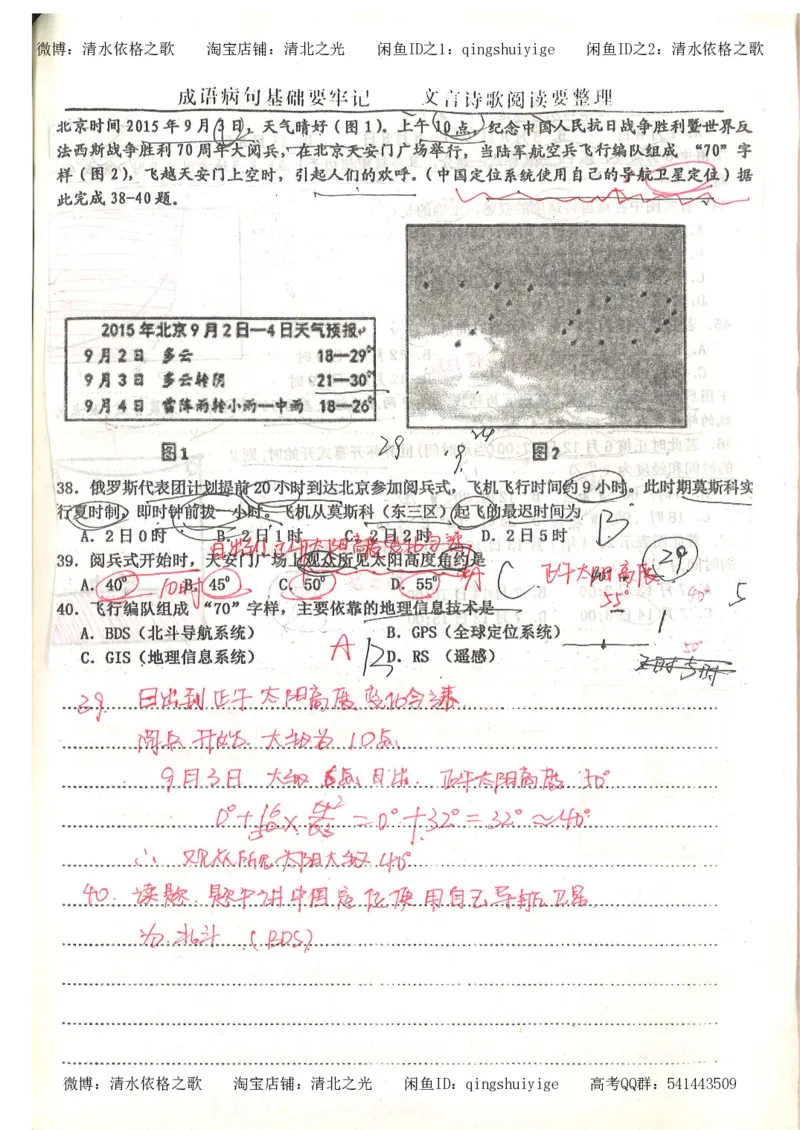 微博：清水依格之歌 淘宝店铺：清北之光 闲鱼ID之1：qingshuiyige 闲鱼ID之2：清水依格之歌
成语病句基础要牢记 文言诗歌阅读要整理
北京时间 2015 年 9 月 3 日，天气晴好（图 1）。上午 10 点，纪念中国人民抗日战争胜利暨世界反
法西斯战争胜利 70 周年大阅兵，在北京天安门广场举行，当陆军航空兵飞行编队组成 “70” 字
样（图 2），飞越天安门上空时，引起人们的欢呼。（中国定位系统使用自己的导航卫星定位）据
此完成 38-40 题。
2015 年北京 9 月 2 日—4 日天气预报
9 月 2 日 多云 18—29°
9 月 3 日 多云转阴 21—30°
9 月 4 日 雷阵雨转小雨—中雨 18—26°
图1 图2
29
38．俄罗斯代表团计划提前 20 小时到达北京参加阅兵式，飞机飞行时间约 9 小时。此时期莫斯科实
行夏时制，即时钟前拨一小时。飞机从莫斯科（东三区）起飞的最迟时间为 B
A．2 日 0 时 B．2 日 1 时 C．2 日 2 时 D．2 日 5 时
日出到正午太阳高度变化匀速
39．阅兵式开始时，天安门广场上观众所见太阳高度角约是 C 正午太阳高度 29
A．40° 10时 B．45° C．50° D．55° A 55° 40° 5
40．飞行编队组成 “70” 字样，主要依靠的地理信息技术是
A．BDS（北斗导航系统） B．GPS（全球定位系统）
C．GIS（地理信息系统） A B D．RS （遥感） 50°
39. 日出到正午太阳高度变化匀速
阅兵开始 大约为 10点
9月3日 大约 点日出. 正午太阳高度 50°
= 0°+32° = 32° ≈40°
∴ 观众所见太阳大约 40°
40. 读题. 题中讲中国定位使用自己导航卫星
为北斗 (BDS)
微博：清水依格之歌 淘宝店铺：清北之光 闲鱼ID：qingshuiyige 高考QQ群：541443509